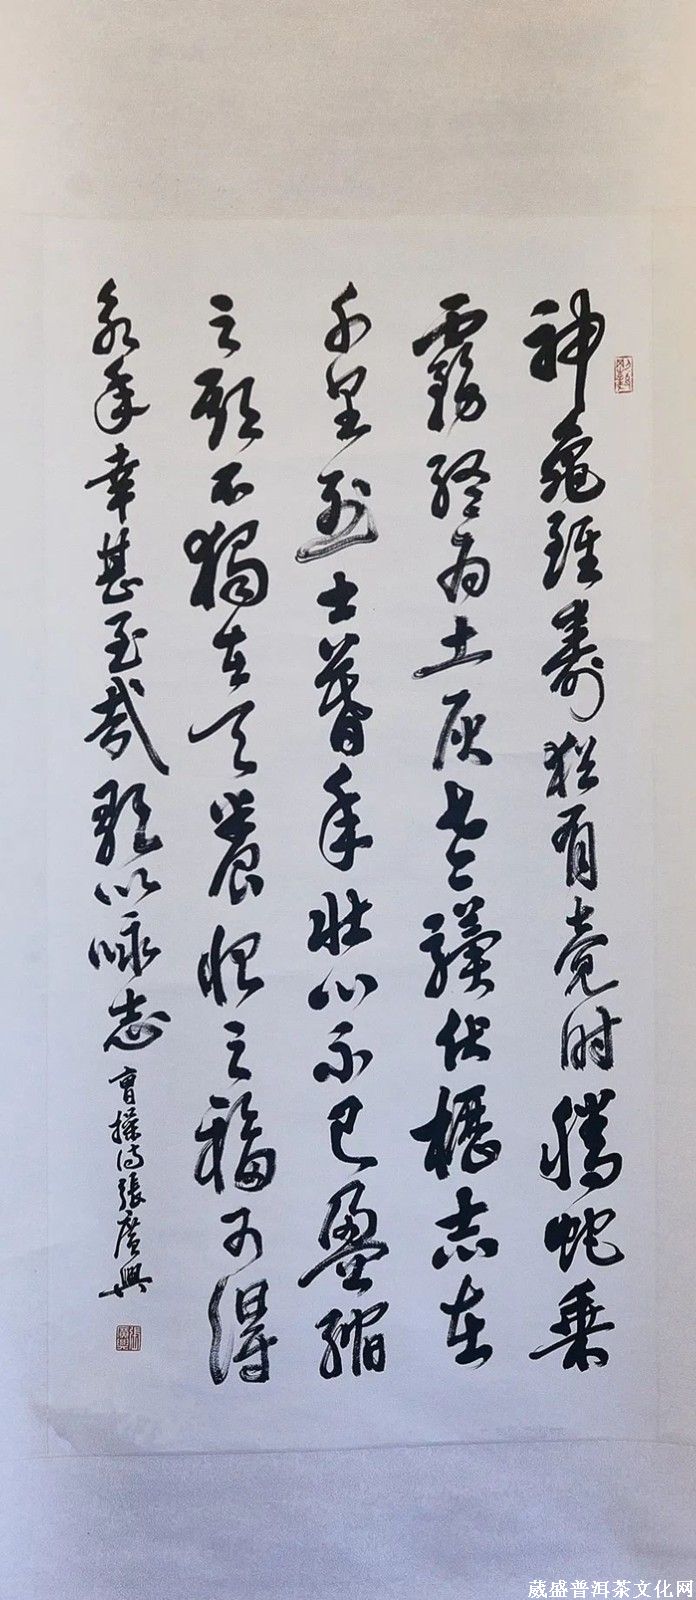 神龜雖壽猶有竟时騰蛇乘
霧終为土灰老驥伏櫪志在
千里烈士暮年壯心不已盈縮
之期不獨在天養怡之福可得
永年幸甚至哉歌以咏志
曹操诗張廣興
葳盛普洱茶文化网